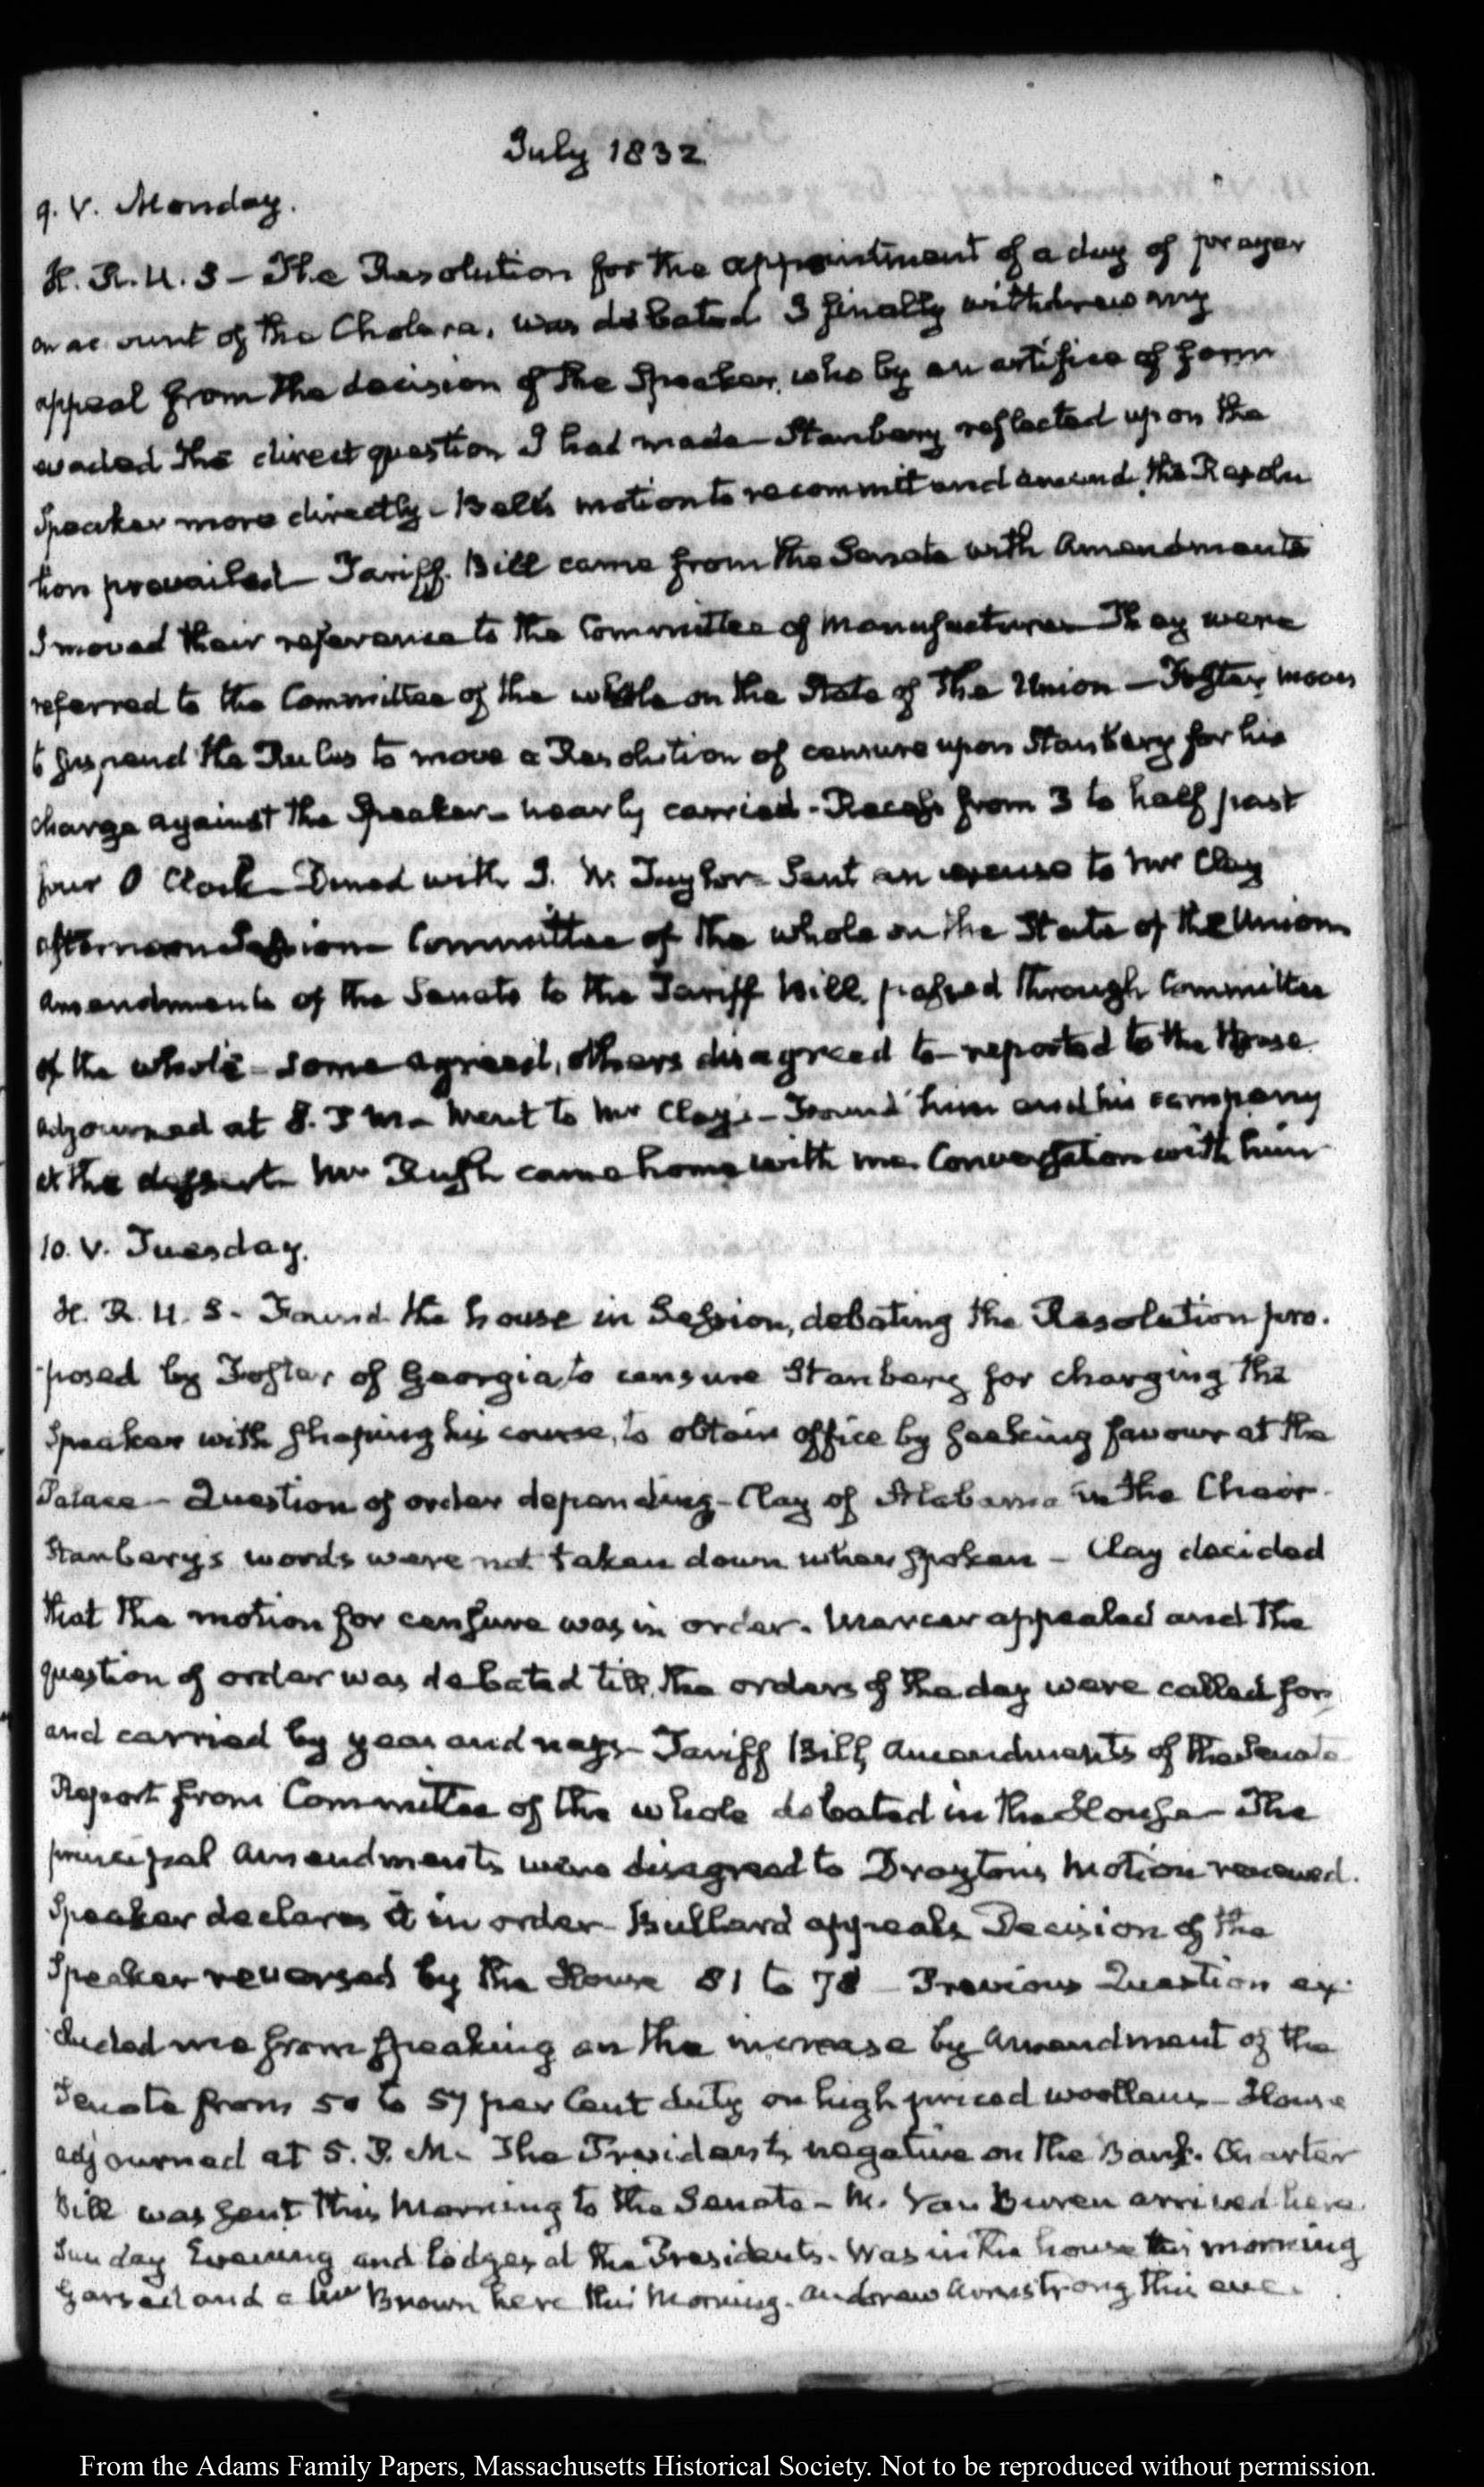 July 1832
9. V. Monday.
H. R. U. S – The Resolution for the appointment of a day of prayer
on account of the Cholera, was debated I finally withdrew my
appeal from the decision of the Speaker, who by an artifice of form
evaded the direct question I had made – Stanbery reflected upon the
Speaker more directly – Bell's motion to recommit and amend the Resolu
tion prevailed – Tariff Bill came from the Senate with Amendments
I moved their reference to the Committee of Manufactures – They were
referred to the Committee of the whole on the State of the Union – Foster moves
to suspend the Rules to move a Resolution of censure upon Stanbery for his
charge against the Speaker – nearly carried – Recess from 3 to half past
four O Clock – Dined with J. W. Taylor – Sent an excuse to Mr Clay
afternoon Session – Committee of the whole on the State of the Union
Amendments of the Senate to the Tariff Bill, passed through Committee
of the whole – some agreed, others disagreed to – reported to the House
adjourned at 8. P M – Went to Mr Clay's – Found him and his company
at the dessert – Mr Rush came home with me. Conversation with him
10. V. Tuesday.
H. R. U. S – Found the house in Session, debating the Resolution pro-
posed by Foster of Georgia, to censure Stanbery for charging the
Speaker with shaping his course, to obtain office by seeking favour at the
Palace – Question of order depending – Clay of Alabama in the Chair.
Stanbery's words were not taken down when spoken – Clay decided
that the motion for censure was in order. Mercer appealed and the
question of order was debated till the orders of the day were called for,
and carried by yeas and nays – Tariff Bill, Amendments of the Senate
Report from Committee of the whole debated in the House – The
principal Amendments were disagreed to Drayton's motion renewed.
Speaker declares it in order – Bullard appeals Decision of the
Speaker reversed by the House 81 to 78 – Previous Question ex-
cluded me from speaking on the increase by Amendment of the
Senate from 50 to 57 per Cent duty on high priced woollens – House
adjourned at 5. P. M. The President's negative on the Bank Charter
Bill was sent this Morning to the Senate – M. Van Buren arrived here
Sunday Evening and lodges at the Presidents. Was in the house this morning
and a Mr Brown here this Morning. Andrew Armstrong this eve.
From the Adams Family Papers, Massachusetts Historical Society. Not to be reproduced without permission.